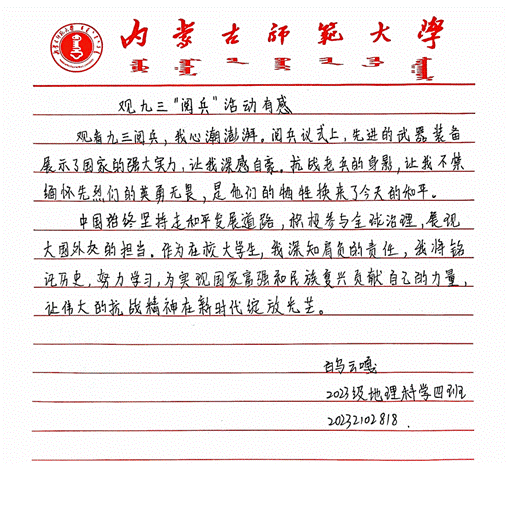 内蒙古师范大学
观九三“阅兵”活动有感
观看九三阅兵，我心潮澎湃。阅兵仪式上，先进的武器装备
展示了国家的强大实力，让我深感自豪。抗战老兵的身影，让我不禁
缅怀先烈们的英勇无畏，是他们的牺牲换来了今天的和平。
中国始终坚持走和平发展道路，积极参与全球治理，展现
大国外交的担当。作为在校大学生，我深知肩负的责任，我将铭
记历史，努力学习，为实现国家富强和民族复兴贡献自己的力量，
让伟大的抗战精神在新时代绽放光芒。
乌云嘎
2023级地理科学四班
20232102818.